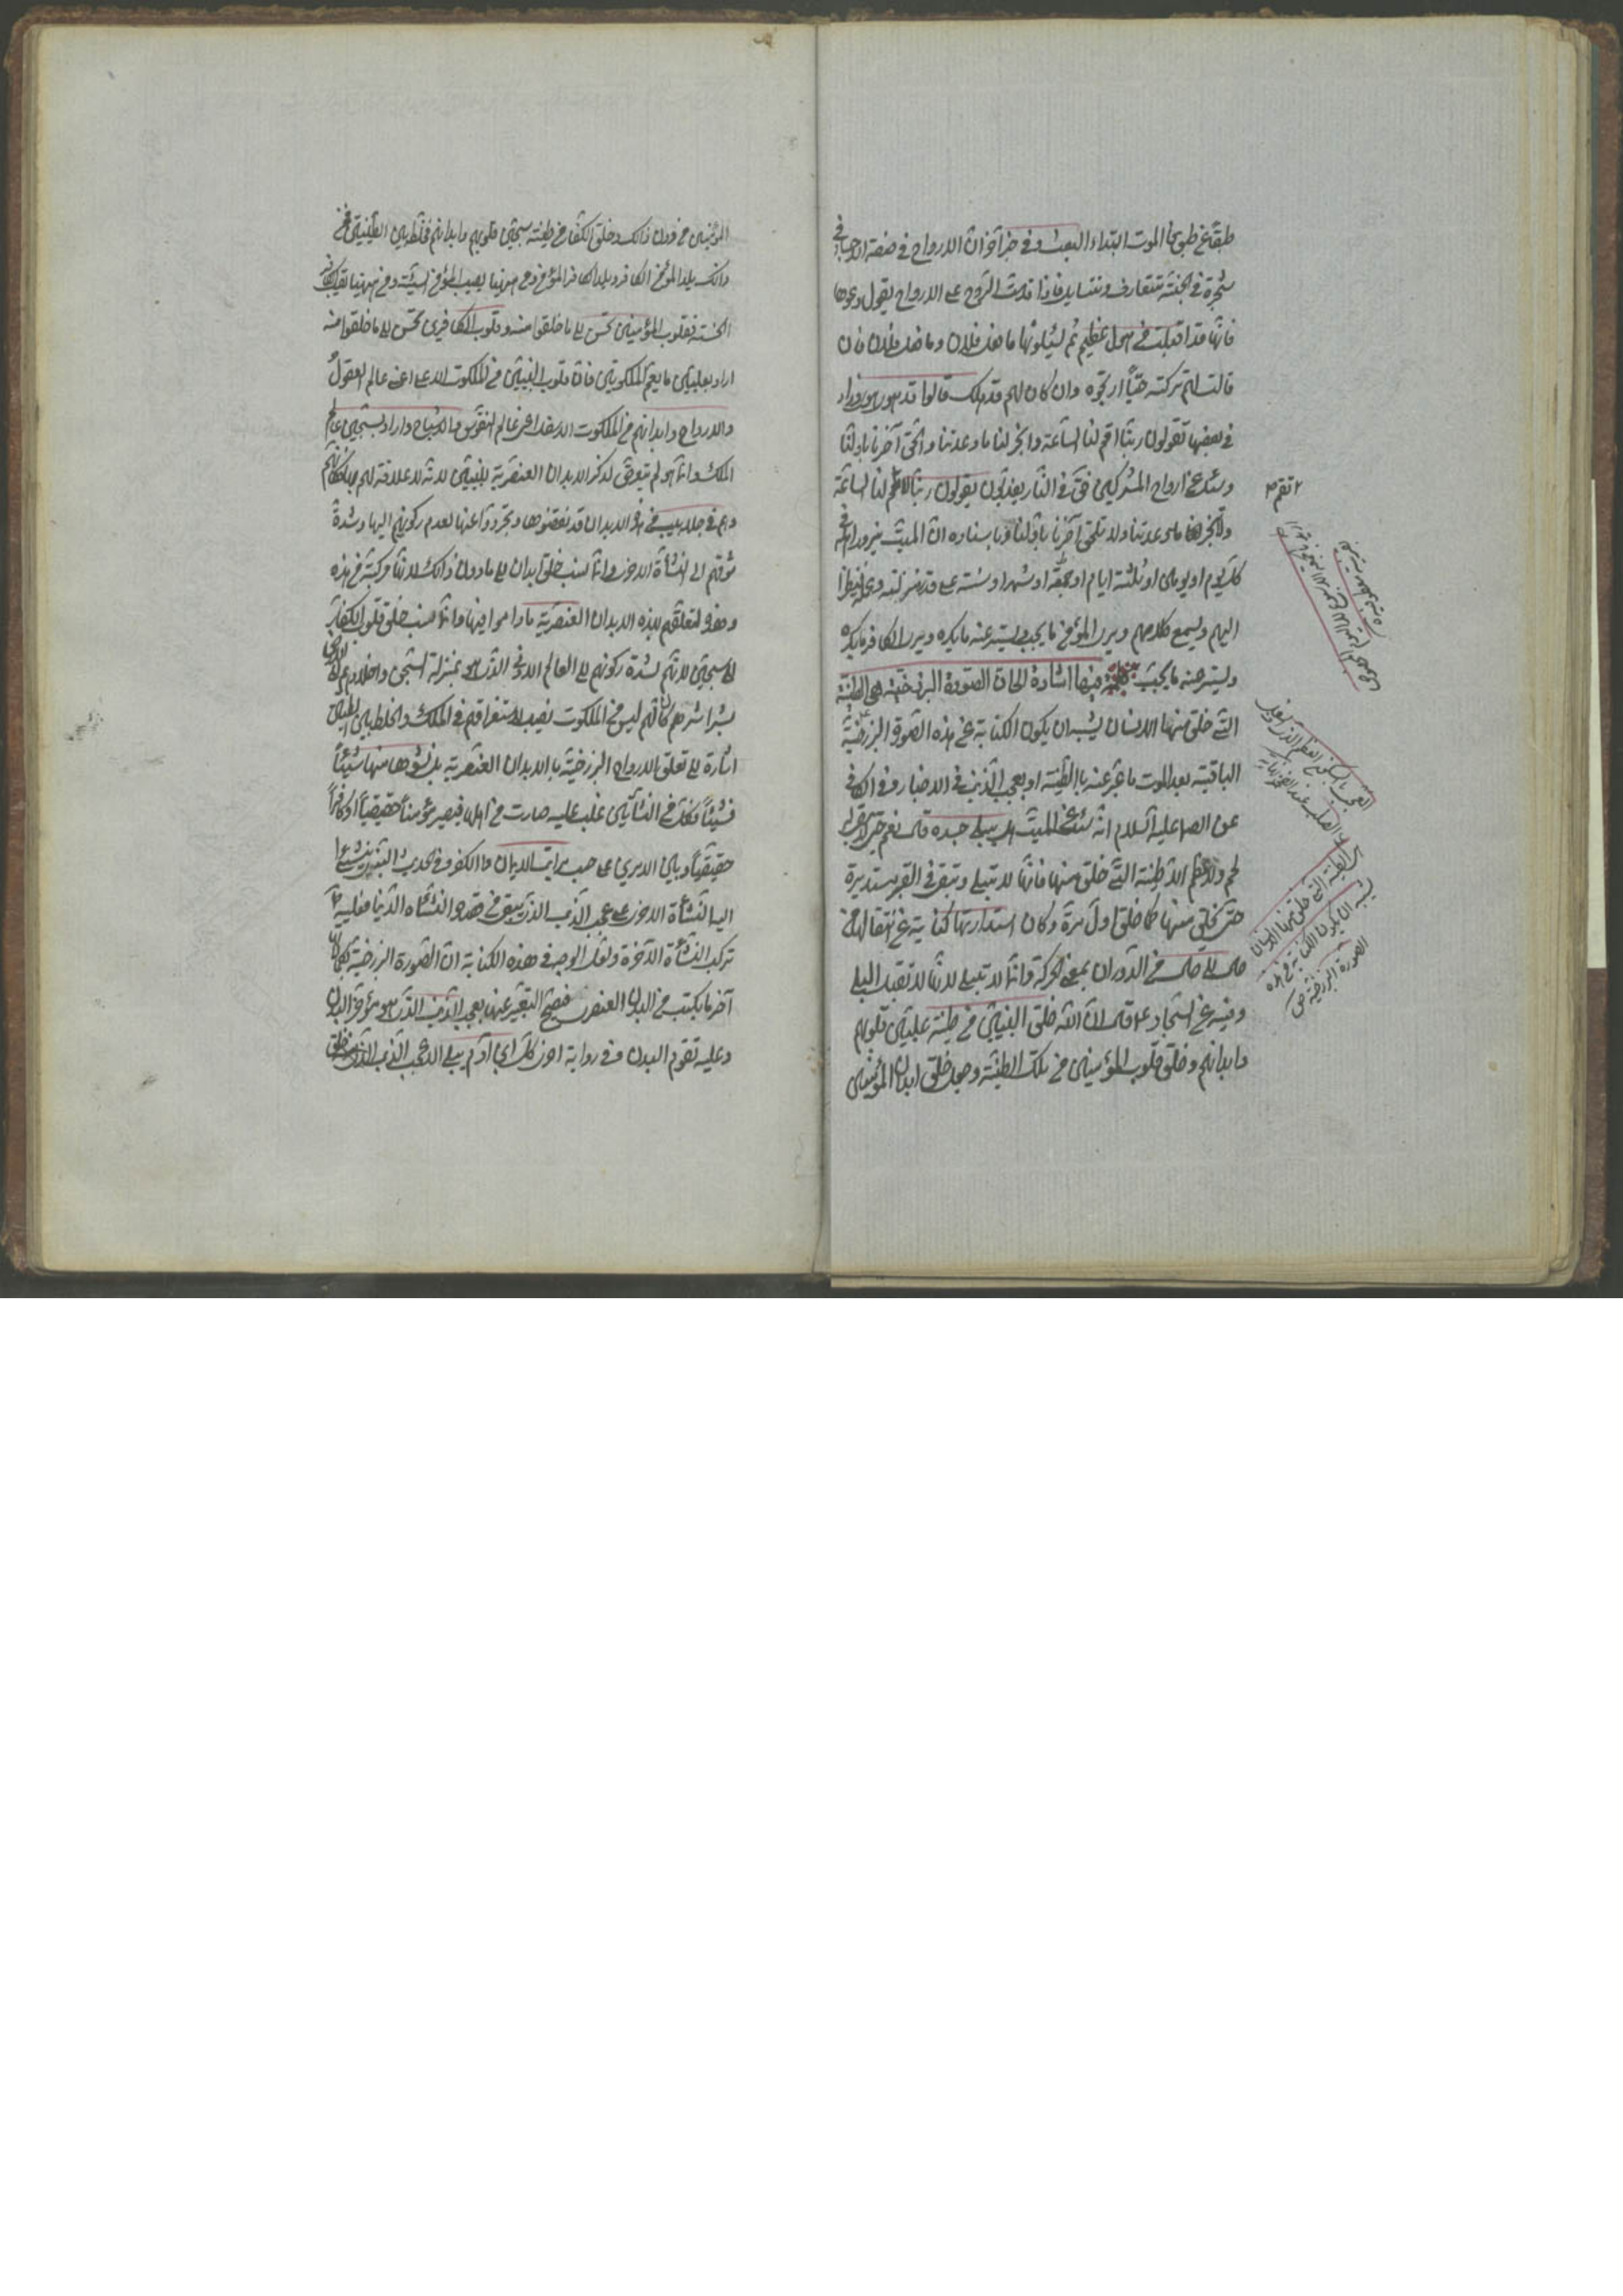 طبقا عن طبق بما الموت ابتداء البعث وفي خبر آخر ان الارواح في صفة الاجساد في
شجرة في الجنة تتعارف وتتسايل فاذا قدمت الروح على الارواح يقول دعوها
فانها قد اقبلت من هول عظيم ثم يسئلونها ما فعل فلان وما فعل فلان فان
قالت لهم تركته حيا ارتجوه وان كان لهم قد هلك قالوا قد هوى هوى وزاد
في بعضها تقولون ربنا اقم لنا الساعة وانجز لنا ما وعدتنا والحق آخرنا باولنا
وسئل عن ارواح المشركين فقال في النار يعذبون يقولون ربنا لا تقم لنا الساعة
ولا تنجز لنا ما وعدتنا ولا تلحق آخرنا باولنا وباسناده ان الميت يزور اهله في
كل يوم او يومين او ثلثة ايام او جمعة او شهر او سنة على قدر منزلته وعمله فينظر
اليهم ويسمع كلامهم ويرى المؤمن ما يحب ويستر عنه ما يكره ويرى الكافر ما يكره
ويستر عنه ما يحب فيها اشارة الى ان الصورة البرزخية هي الطينة
التي خلق منها الانسان يشبه ان يكون الكناية عن هذه الصورة البرزخية
الباقية بعد الموت ما عبر عنه بالطينة او بعجب الذنب في الاخبار وفي الكافي
عن الصادق عليه السلام انه سئل عن الميت هل يبلى جسده قال نعم حتى لا يبقى له
لحم ولا عظم الا طينته التي خلق منها فانها لا تبلى وتبقى في القبر مستديرة
حتى يخلق منها كما خلق اول مرة وكان استدارتها كناية عن انتقالها من
حال الى حال من الدوران بمعنى الحركة وانها لا تبلى لانها لا تقبل البلى
وفيه عن السجاد ع قال ان الله خلق النبيين من طينة عليين قلوبهم
وابدانهم وخلق قلوب المؤمنين من تلك الطينة وجعل خلق ابدان المؤمنين
تقم
العجب بالسكون العظم الذي في اسفل
الصلب عند العجز
هي الطينة التي خلق منها الانسان
يشبه ان يكون الكناية عن هذه
الصورة البرزخية ص
المؤمنين من دون ذلك وخلق الكفار من طينة سجين قلوبهم وابدانهم فخلط بين الطينتين فمن
ذلك يلد المؤمن الكافر ويلد الكافر المؤمن ومن ههنا يصيب المؤمن السيئة ومن ههنا يصيب الكافر
الحسنة فقلوب المؤمنين تحن الى ما خلقوا منه وقلوب الكافرين تحن الى ما خلقوا منه
اراد بعليين ما يعم الملكوتين فان قلوب النبيين من الملكوت الاعلى اعني عالم العقول
والارواح وابدانهم من الملكوت الاسفل اعني عالم النفوس والاشباح واراد بسجين عالم
الملك وانما هو لم يتعرض لذكر الابدان العنصرية للنبيين لانه لا علاقة لهم بها فكانهم
وهم في جلابيب من هذه الابدان قد نفضوها وتجردوا عنها لعدم ركونهم اليها وشدة
شوقهم الى النشأة الاخرى وانما نسب خلق ابدان الى ما دون ذلك لانها مركبة من هذه
ومن هذه لتعلقهم بهذه الابدان العنصرية ما داموا فيها وانما نسب خلق قلوب الكفار
الى سجين لانهم لشدة ركونهم الى العالم الادنى الذي هو بمنزلة السجن واخلادهم الى الارض
بشراشرهم كانهم ليس لهم من الملكوت نصيب لاستغراقهم في الملك والخلط بين الطينتين
اشارة الى تعلق الارواح البرزخية بالابدان العنصرية بل نشوها منها شيئا
فشيئا فكل من النشأتين غلب عليه صارت من اهلها فيصير مؤمنا حقيقيا او كافرا
حقيقيا او بين الامرين على حسب مراتب الايمان والكفر وفي الحديث النبوي ينشئ
النشأة الاخرى على عجب الذنب الذي يبقى من هذه النشأة الدنيا فعليه
تركب النشأة الآخرة ولعل الوجه في هذه الكناية ان الصورة البرزخية
آخر ما يكتسب من البدن العنصري فيصح التعبير عنها بعجب الذنب الذي هو مؤخر البدن
وعليه تقوم البدن وفي رواية اخرى كل ابن آدم يبلى الا عجب الذنب الذي منه خلق